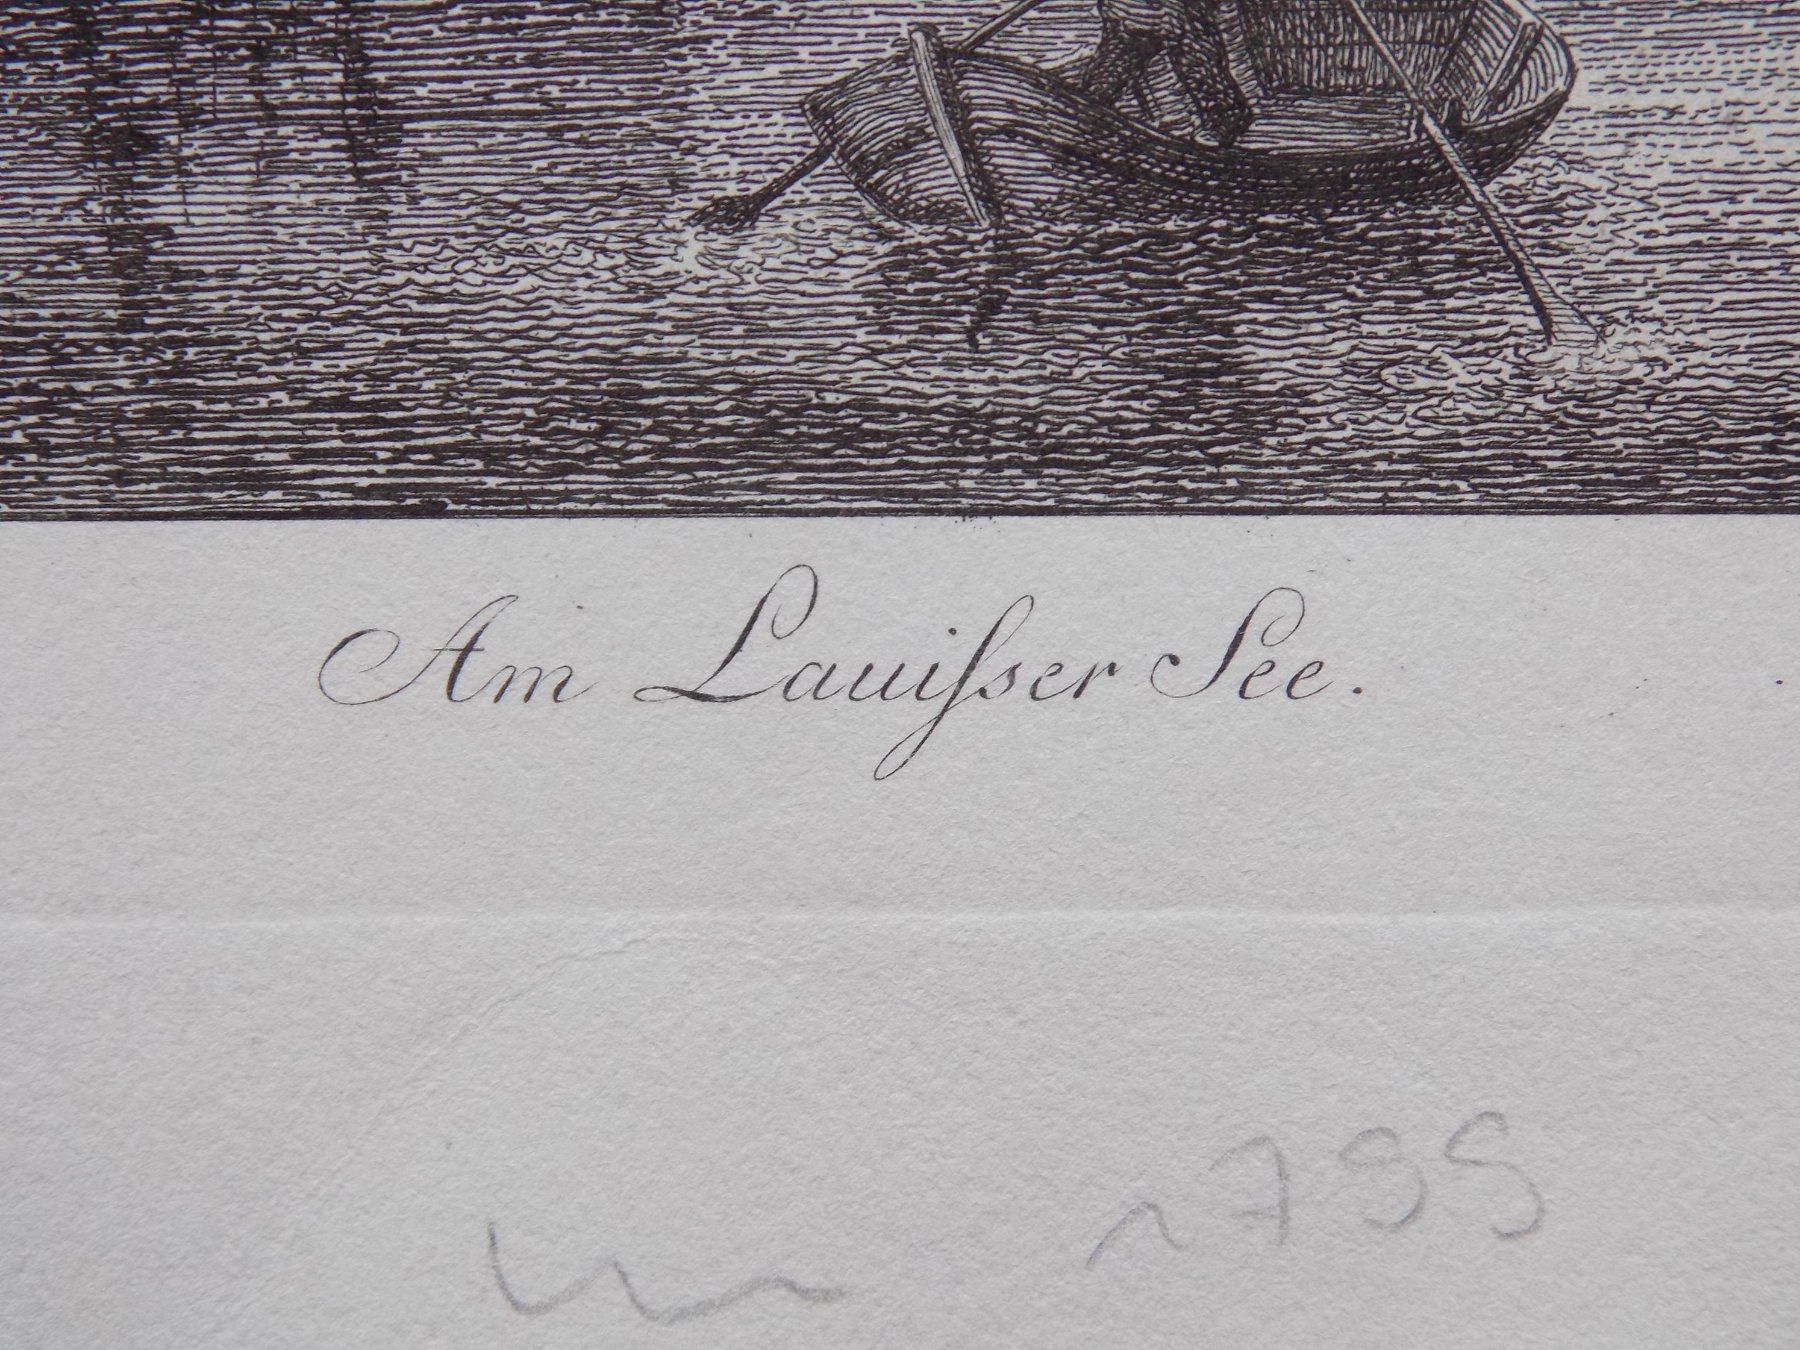 Am Lauiſser See.
1799